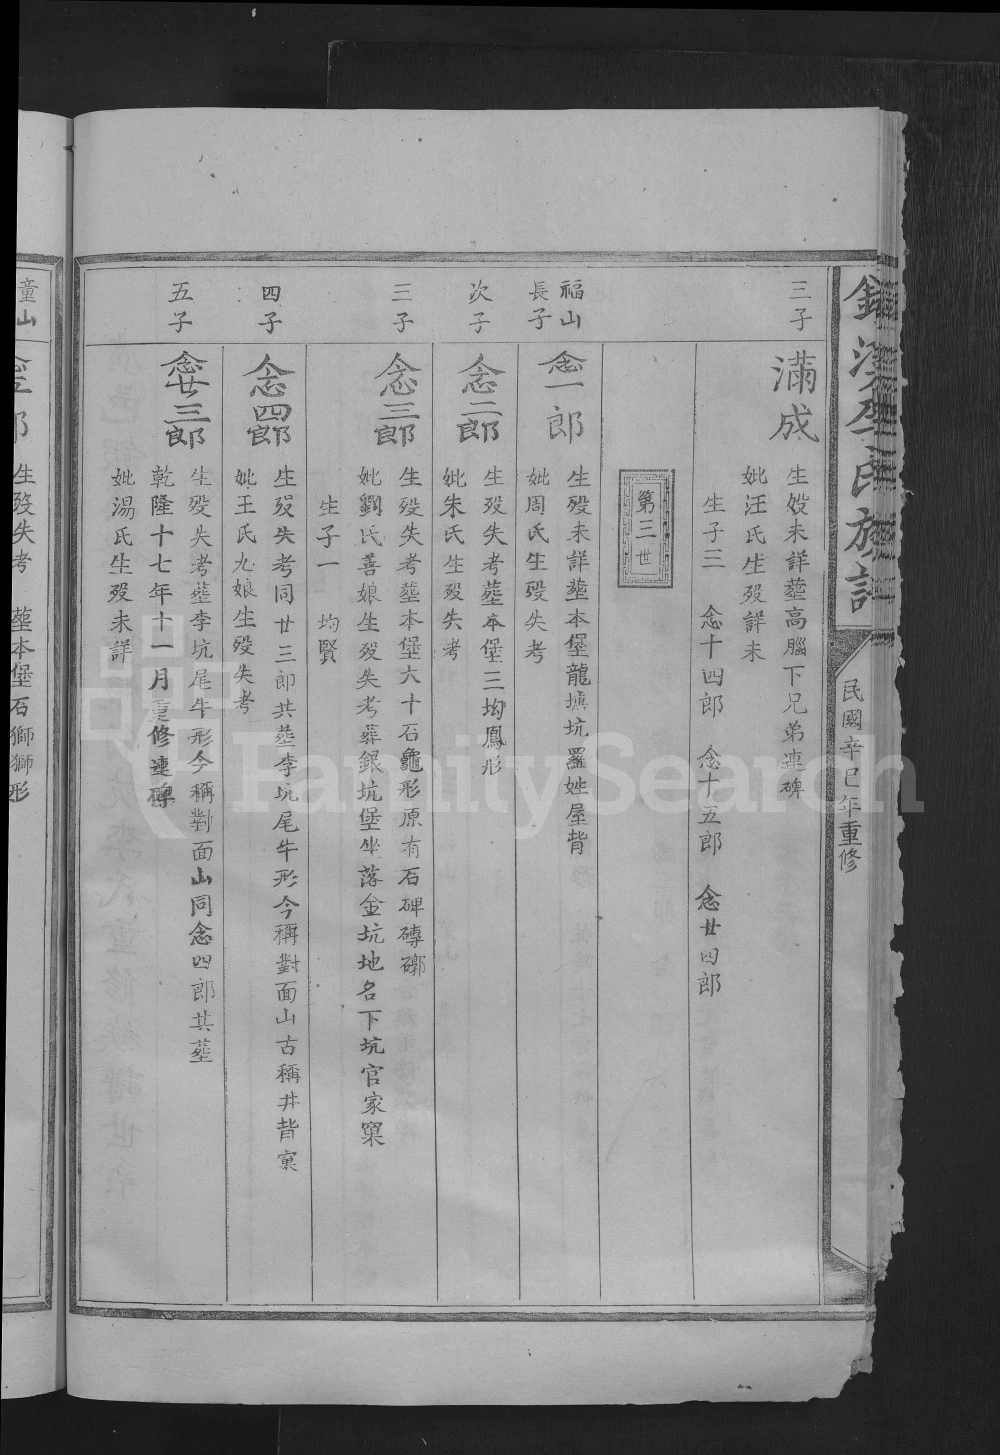 溪李氏族譜
民國辛巳年重修
三子
滿成
生歿未詳塟高腦下兄弟連碑
妣汪氏生歿詳未
生子三 念十四郎 念十五郎 念廿四郎
第三世
福山
長子
念一郎
生歿未詳塟本堡龍塘坑羅姓屋背
妣周氏生歿失考
次子
念二郎
生歿失考塟本堡三坳鳳形
妣朱氏生歿失考
三子
念三郎
生歿失考塟本堡六十石龜形原有石碑磚槨
妣劉氏善娘生歿失考葬銀坑堡坐落金坑地名下坑官家窠
生子一 均賢
四子
念四郎
生歿失考同廿三郎共塟李坑尾牛形今稱對面山古稱井背窠
妣王氏九娘生歿失考
五子
念廿三郎
生歿失考塟李坑尾牛形今稱對面山同念四郎共塟
乾隆十七年十一月重修連磚
妣湯氏生歿未詳
童山
郎
生歿失考 塟本堡石獅獅形
FamilySearch